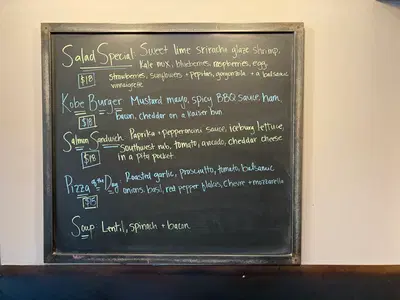 Salad Special Sweet lime sriracha glaze shrimp,
Kale mix, blueberries, raspberries, egg,
$18 strawberries, sunflowers + pepitas, gorgonzola + a balsamic
vinaigrette
Kobe Burger Mustard mayo, spicy BBQ sauce, ham,
$18 bacon, cheddar on a Kaiser bun
Salmon Sandwich Paprika + pepperoncini sauce, iceburg lettuce,
$18 Southwest rub, tomato, avocado, cheddar cheese
in a pita pocket
Pizza of the Day Roasted garlic, prosciutto, tomato, balsamic
onions, basil, red pepper flakes, chevre + mozzarella
Soup Lentil, spinach + bacon